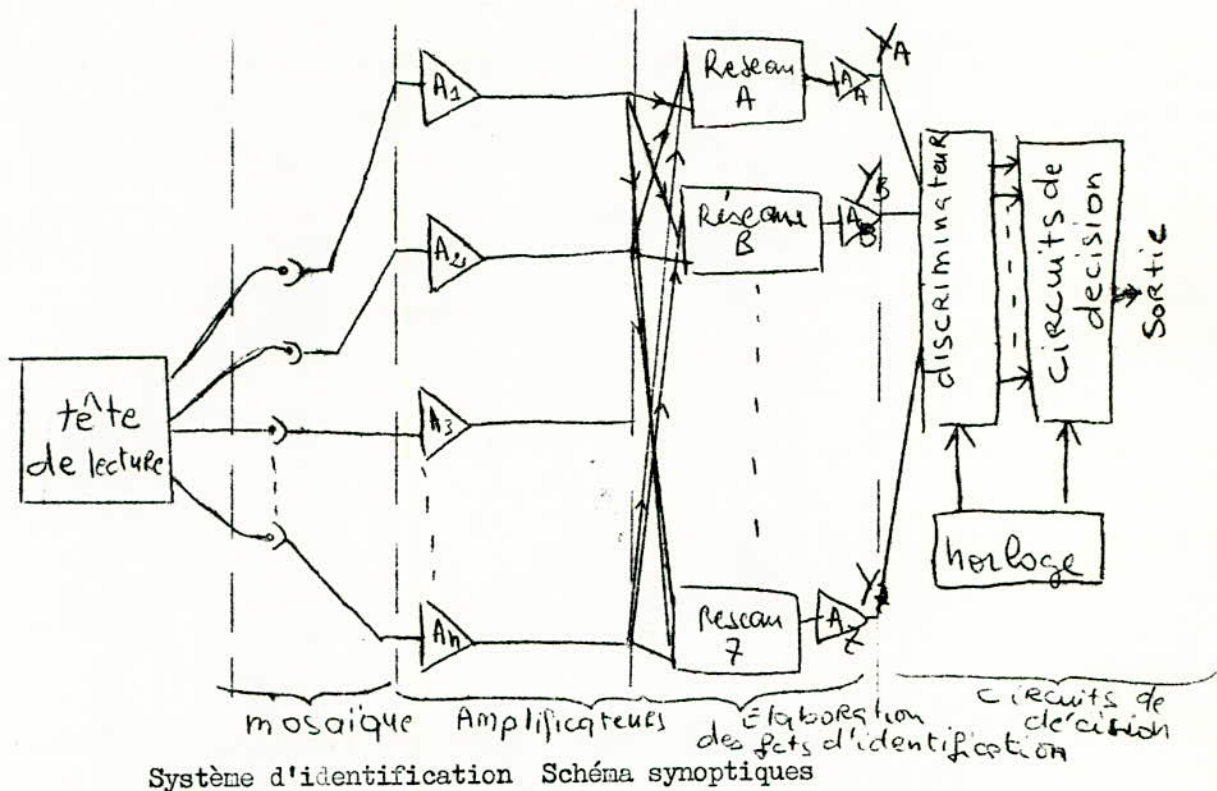 tête
de lecture
A1
A2
A3
An
Reseau
A
Réseau
B
Reseau
Z
AA
AB
AZ
YA
YB
YZ
discriminateur
Circuits de
decision
Sortie
horloge
mosaïque
Amplificateurs
Elaboration
des fcts d'identification
Circuits de
décision
Système d'identification Schéma synoptiques